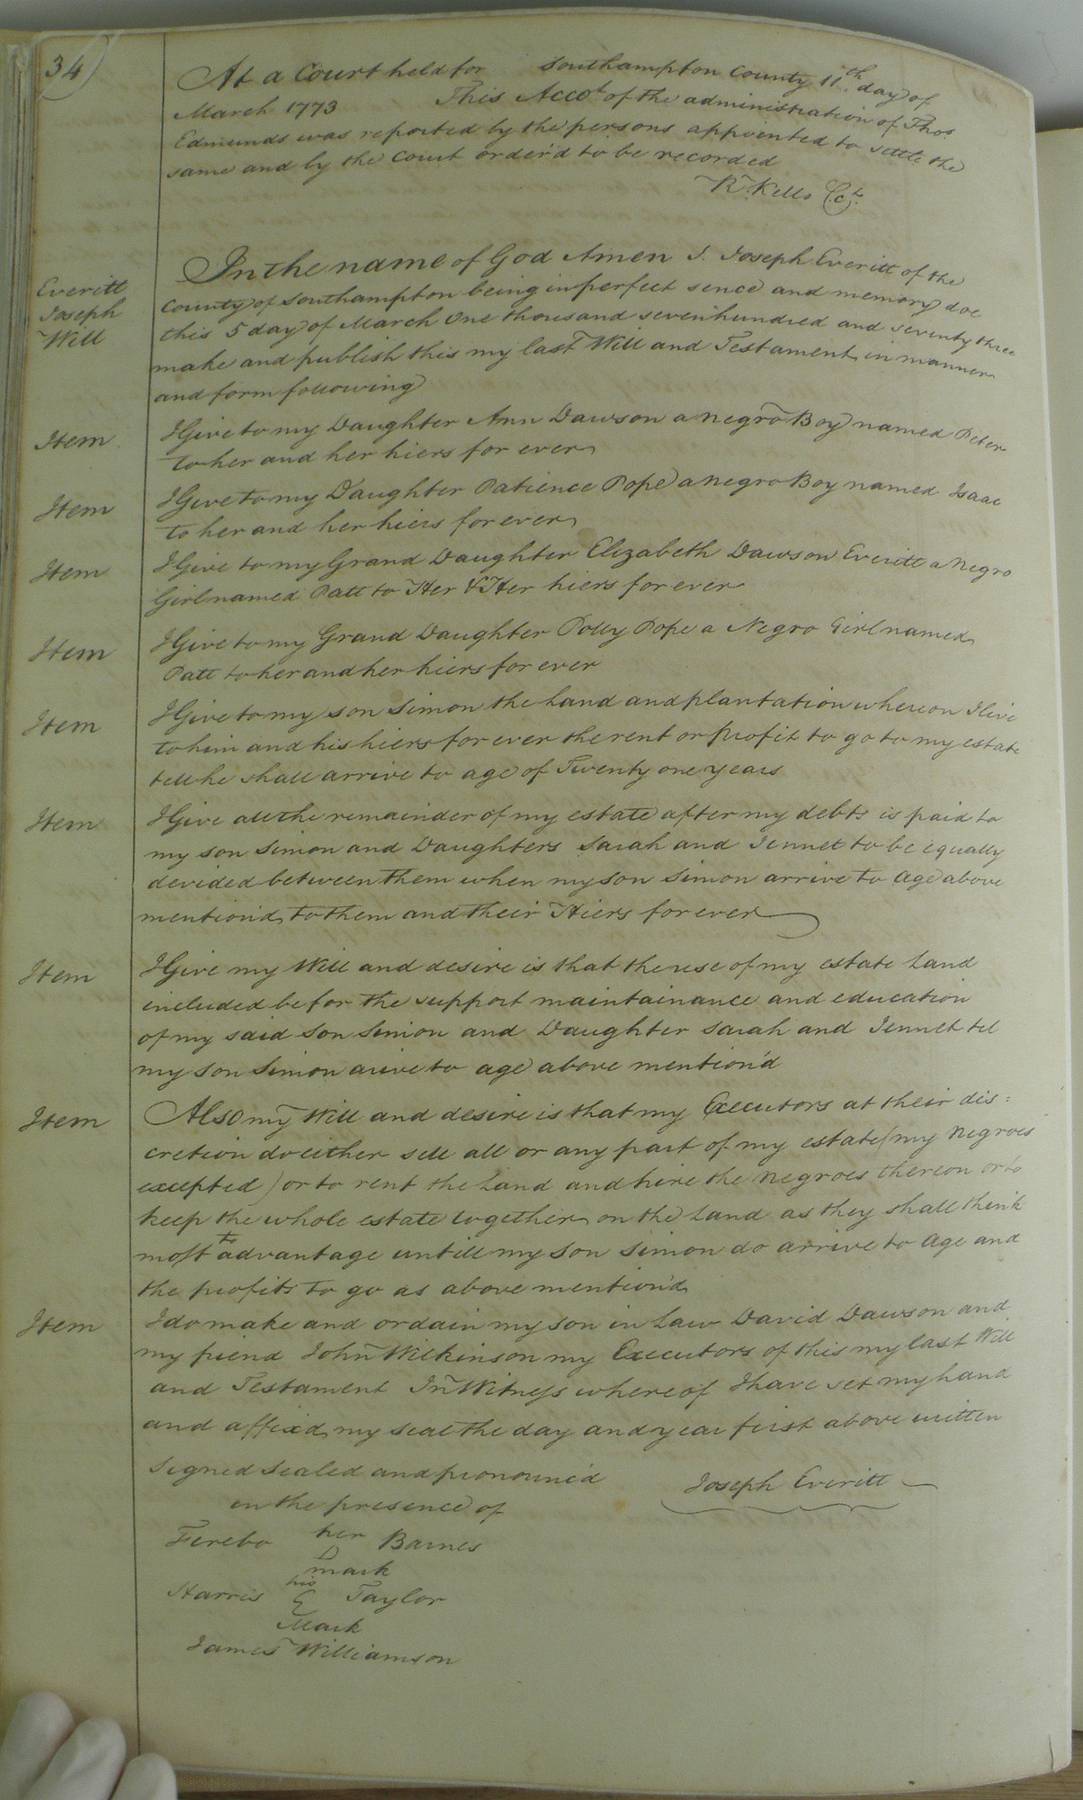 34
At a Court held for Southampton County 11th day of
March 1773 This Accot of the administration of Thos
Edmunds was reported by the persons appointed to settle the
same and by the Court order'd to be recorded
R. Kello
Everitt
Joseph
Will
In the name of God Amen I. Joseph Everitt of the
County of Southampton being in perfect sence and memory doe
this 5 day of March One thousand seven hundred and seventy three
make and publish this my last Will and Testament, in manner
and form following
Item
I Give to my Daughter Ann Dawson a negro Boy named Peter
to her and her hiers for ever
Item
I Give to my Daughter Patience Pope a negro Boy named Isaac
to her and her hiers for ever
Item
I Give to my Grand Daughter Elizabeth Dawson Everitt a Negro
Girl named Patt to Her & Her hiers for ever
Item
I Give to my Grand Daughter Polly Pope a Negro Girl named
Patt to her and her hiers for ever
Item
I Give to my son Simon the Land and plantation whereon I live
to him and his hiers for ever the rent or profit to go to my estate
till he shall arrive to age of Twenty one years
Item
I Give all the remainder of my estate after my debts is paid to
my son Simon and Daughters Sarah and Jennet to be equally
devided between them when my son Simon arrive to age above
mention'd, to them and their Hiers for ever
Item
I Give my Will and desire is that the use of my estate Land
included be for the support maintainance and education
of my said Son Simon and Daughter Sarah and Jennet til
my son Simon arive to age above mention'd
Item
Also my Will and desire is that my Executors at their dis:
cretion do either sell all or any part of my estate (my Negroes
excepted) or to rent the Land and hire the Negroes thereon or to
keep the whole estate together on the Land as they shall think
most to advantage untill my son Simon do arrive to age and
the profits to go as above mention'd
Item
I do make and ordain my son in Law David Dawson and
my friend John Wilkinson my Executors of this my last Will
and Testament In Witness whereof I have set my hand
and affixd, my seal the day and year first above written
Signed Sealed and pronounc'd
in the presence of
Joseph Everitt
Ferebo her Barnes
mark
Harris his Taylor
Mark
James Williamson